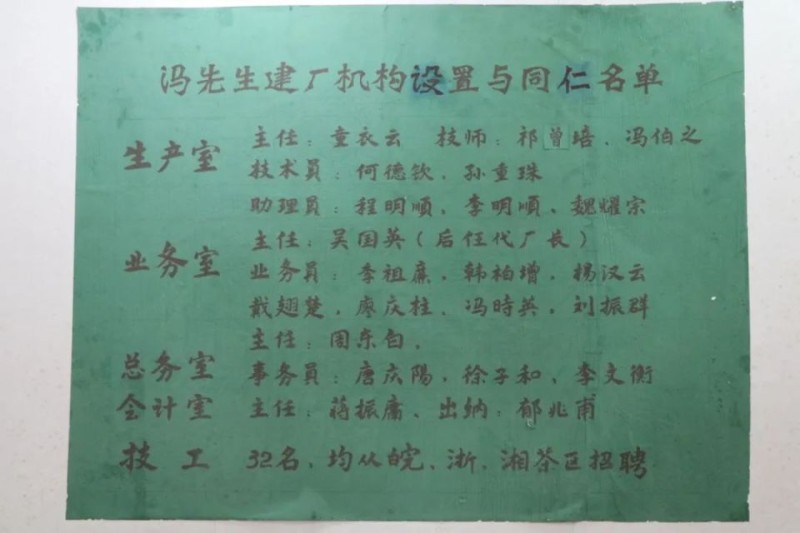 冯先生建厂机构设置与同仁名单
生产室 主任：童衣云 技师：祁曾培、冯伯之
技术員：何德钦、孙重珠
助理員：程明順、李明順、魏耀宗
业务室 主任：吴国英（后任代厂长）
业务員：李祖廉、韩柏增、杨汉云
戴翅楚、廖庆柱、冯時英、刘振群
总务室 主任：周东白、
事务員：唐庆陽、徐子和、李文衡
会计室 主任：蒋振庸、出纳：郁兆甫
技工 32名、均从皖、浙、湘茶区招聘